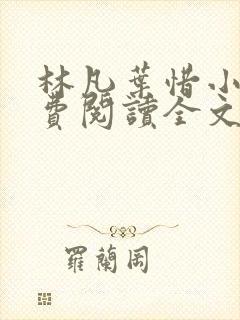 林凡葉惜小
費閱讀全文
羅蘭岡